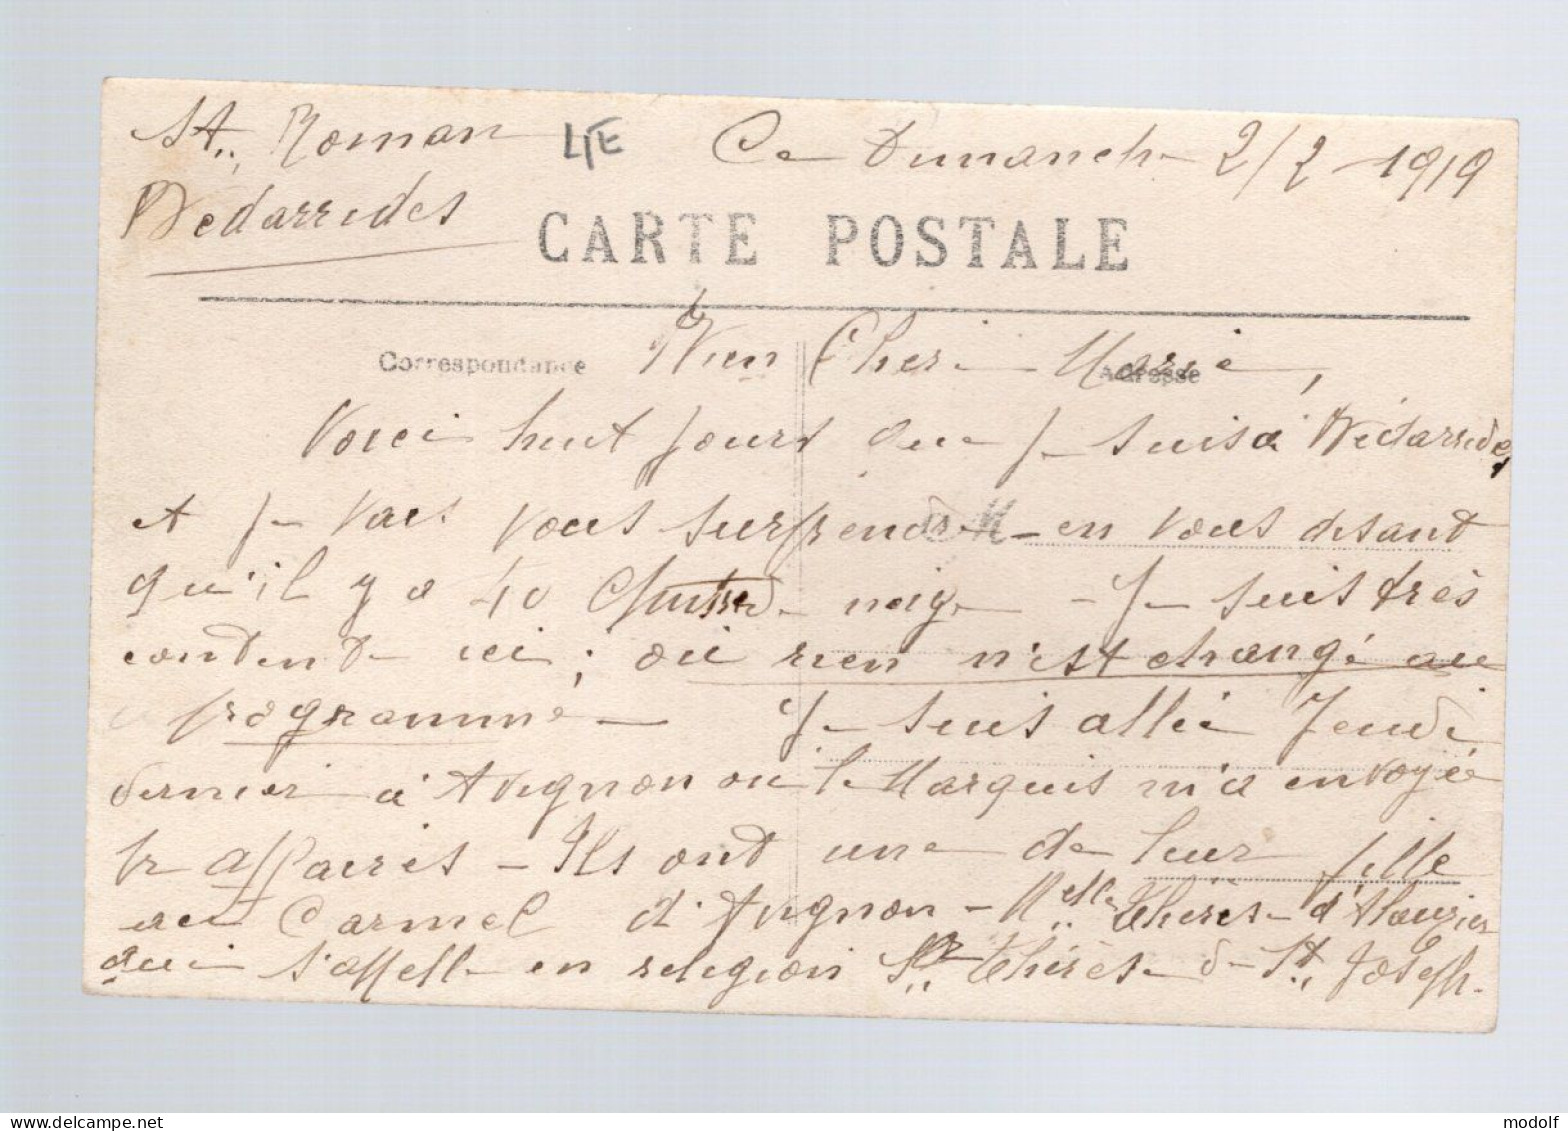 St. Roman 4/E Ce Dimanche 2/2 1919
Bédarrides
CARTE POSTALE
Correspondance Adresse
Bien Cher Marie,
Voici huit jours que je suis à Bédarrides,
et je vais vous surprendre en vous disant
qu'il y a 40 de neige - Je suis très
contente ici ; où rien n'est changé au
programme - Je suis allée Jeudi
dernier à Avignon où le Marquis m'a envoyée
pr affaires - Ils ont une de leur fille
au Carmel d'Avignon - Melle Thérèse
qui s'appelle en religion Sr Thérèse de St. Joseph.
delcampe.net
modolf